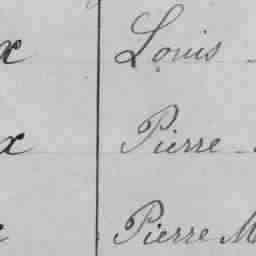 x Louis
x Pierre
Pierre M